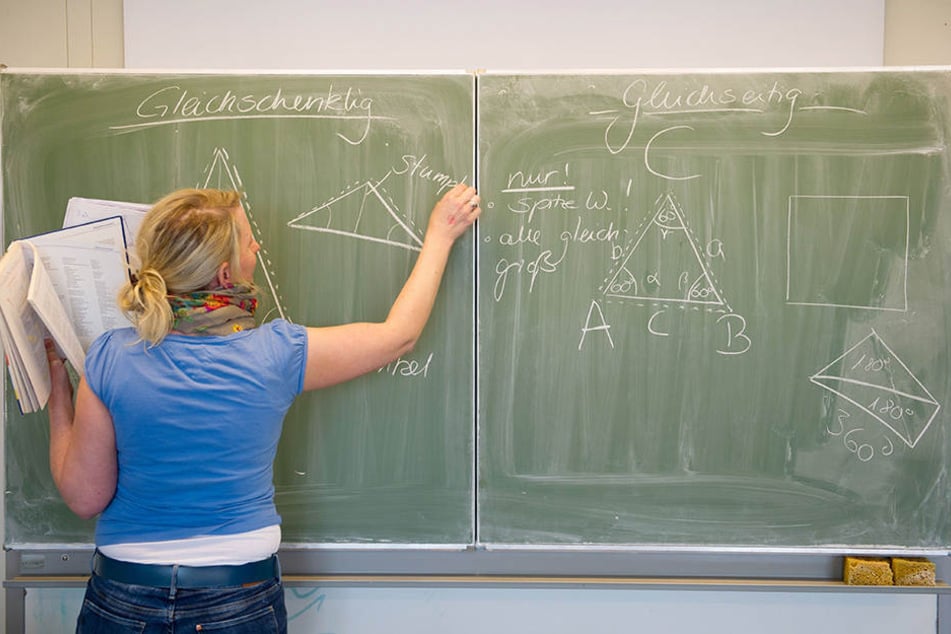 Gleichschenklig
Gleichseitig
nur!
• spitze W.!
• alle gleich
groß
C
60°
γ
b
a
60°
α
β
60°
A
c
B
180°
180°
360°